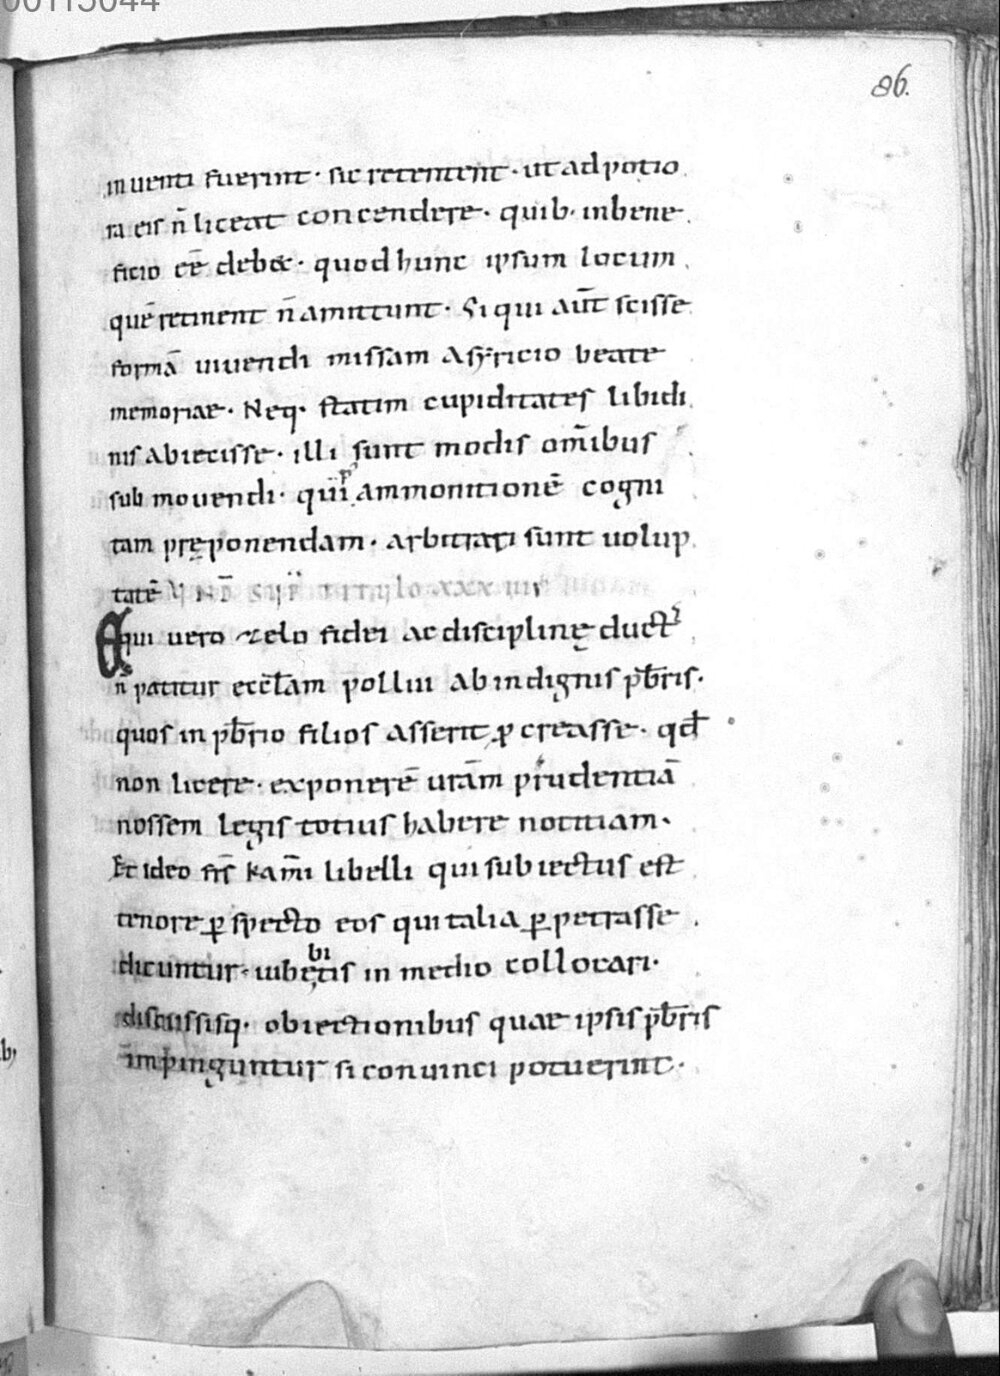 00115044
86.
inuenti fuerint · sic retentent · ut ad potio
ra eis n̄ liceat concendere · quib· inbene
ficio eē deb& · quod hunc ipsum locum
quē retinent n̄ amittunt · Si qui aūt scisse
formā uiuendi missam asyricio beate
memoriae · Neq· statim cupiditates libidi
nis abiecisse · illi sunt modis om̄ibus
submouendi · qui p̾ ammonitionē cogni
tam pręponendam · arbitrati sunt uolup
tatē
Qui uero zelo fidei ac disciplinę duct᷒
n̄ patitur eccl̄am pollui ab indignis pb̄ris·
quos in pb̄rio filios asserit ꝓcreasse · qd̄
non licere · exponerē ur̄am prudentiā
nossem legis totius habere notitiam·
Et ideo fr̄s kam̄i libelli qui subiectus est
tenore ꝑspecto eos qui talia ꝑpetrasse
dicuntur · iubetis in medio collocari·
bi
discussisq· obiectionibus quae ipsis pb̄ris
impinguntur si conuinci potuerint·